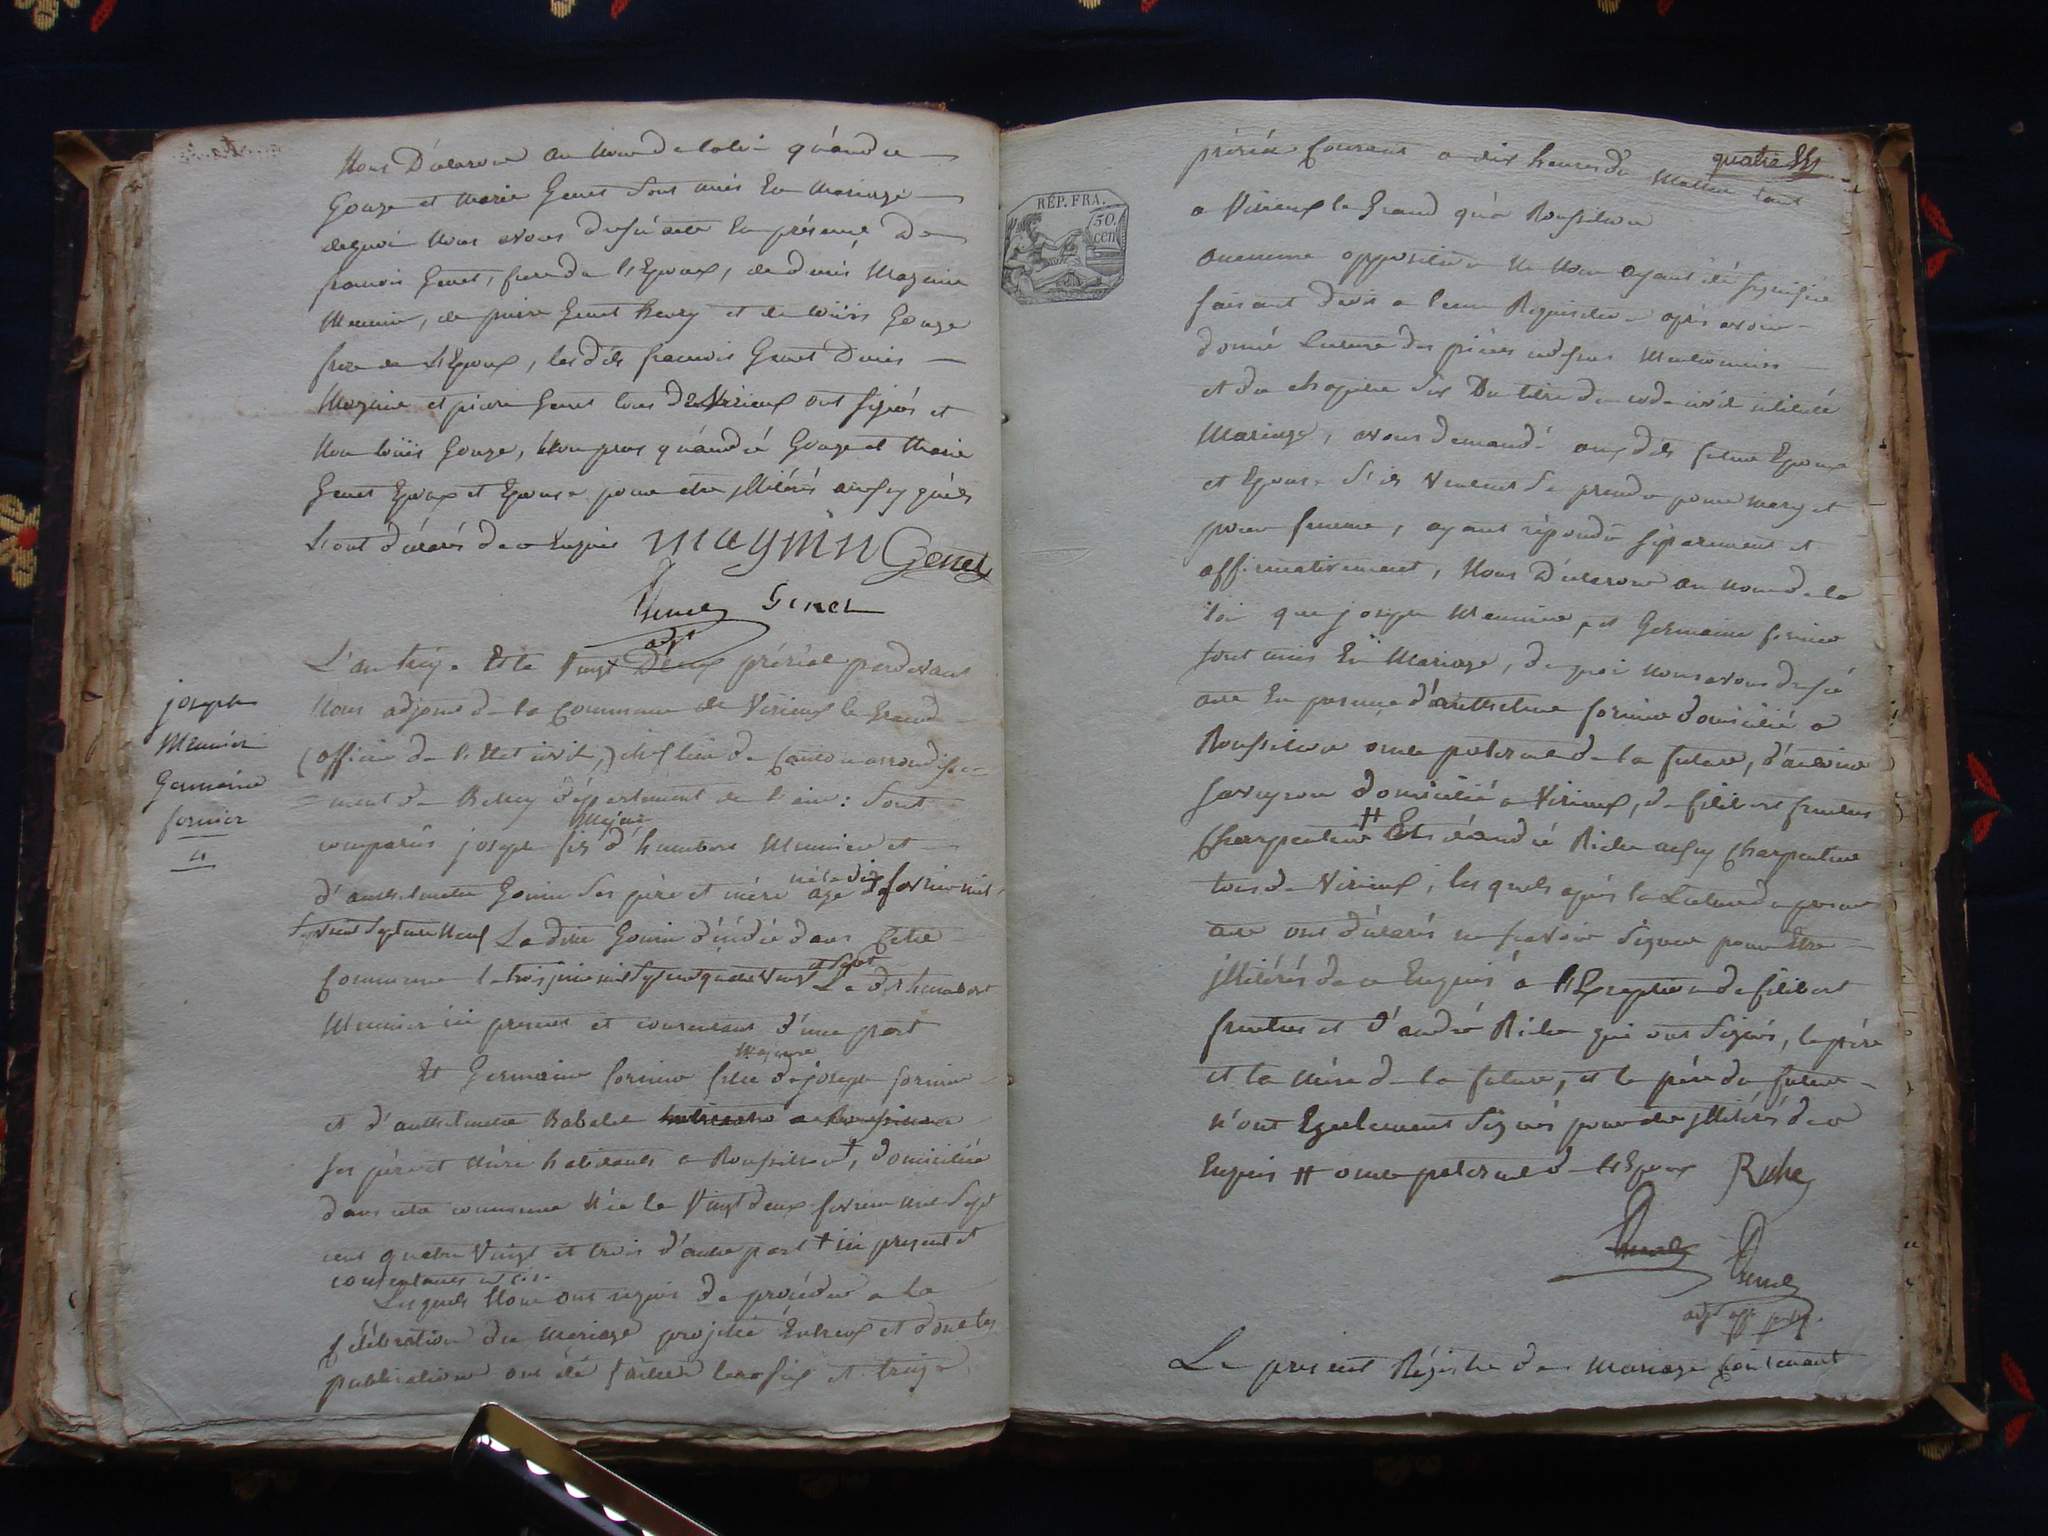 Nous Déclarons au Nom de la loi qu'andré
Gouge et Marie Genet sont unis En Mariage
dequoi Nous avons dressé acte En présence De
francois Genet, frere de l'Epouse, de denis Magnin
Meunier, de pierre Genet henry et de loüis Gouge
frere de l'Epoux, les dits francois Genet Denis
Magnin et pierre Genet tous De Virieux ont signés et
Non loüis Gouge, Non plus qu'andré Gouge et Marie
Genet Epoux et Epouse pour etre jllitérés ainsy qu'ils
l'ont déclarés de ce Enquis magnin Genet
Genet
adjt
L'an treize Et le Vingt Deux prérial pardevant
Nous adjoint de la Commune de Virieux le Grand
(officier de l'Etat civil,) chef lieu de Canton arrondisse=
=ment de Belley département de l'ain: Sont
comparûs joseph Majeur fils d'humbert Meunier et
d'anthelmette Gonin Ses père et mère né le dix fevrier mil
Sept cent Septante Neuf La dite Gonin décédée dans Cette
Commune le trois juin mil Sept cent quatre vingt et Sept Le dit humbert
Meunier ici present et consentant d'une part
joseph
Meunier
Germaine
fornier
Et Germaine fornier Majeure fille de joseph fornier
et d'anthelmette Babolet
Ses père et Mère habitants a Roussillon, domiciliée
dans cette commune Née le Vingt deux fevrier mil Sept
cent quatre Vingt et trois d'autre part + ici present et
consentants
Lesquels Nous ont requis de procéder a la
Célébration du Mariage projetté Entreux et dont les
publications ont été faites les six et treize
quatre
RÉP. FRA.
50
cen
prérial Courant a dix heures du Matin tant
a Virieux le Grand qu'a Roussillon
aucunne opposition Ne Nous ayant été signifiée
faisant droit a leur Requisition après avoir
donné Lecture des pièces cydessus Mentionnées
et du chapitre Six Du titre du code civil intitulé
Mariage, avons demandé aux dits futur Epoux
et Epouse S'ils Veulent Se prendre pour mary et
pour femme, ayant répondû séparement et
affirmativement, Nous Déclarons au Nom de la
loi que joseph Meunier, et Germaine fornier
sont unis En Mariage, de quoi nous avons dressé
acte En presence d'anthelme fornier domicilié a
Roussillon oncle paternel de la future, d'antoine
domicilié a Virieux, de filibert
Charpentier # Et d'andré Riche aussy Charpentier
tous de Virieux, les quels après la Lecture du present
acte ont déclarés ne scavoir Signer pour Etre
jllitérés de ce Enquis a l'Exception de filibert
et d'andré Riche qui ont Signés, le père
et la Mère de la future, et le père du futur
n'ont Egalement Signés pour etre jllitérés de ce
Enquis # oncle paternel de l'Epoux Riche
adjt off
Le present Régistre des Mariage Contenant